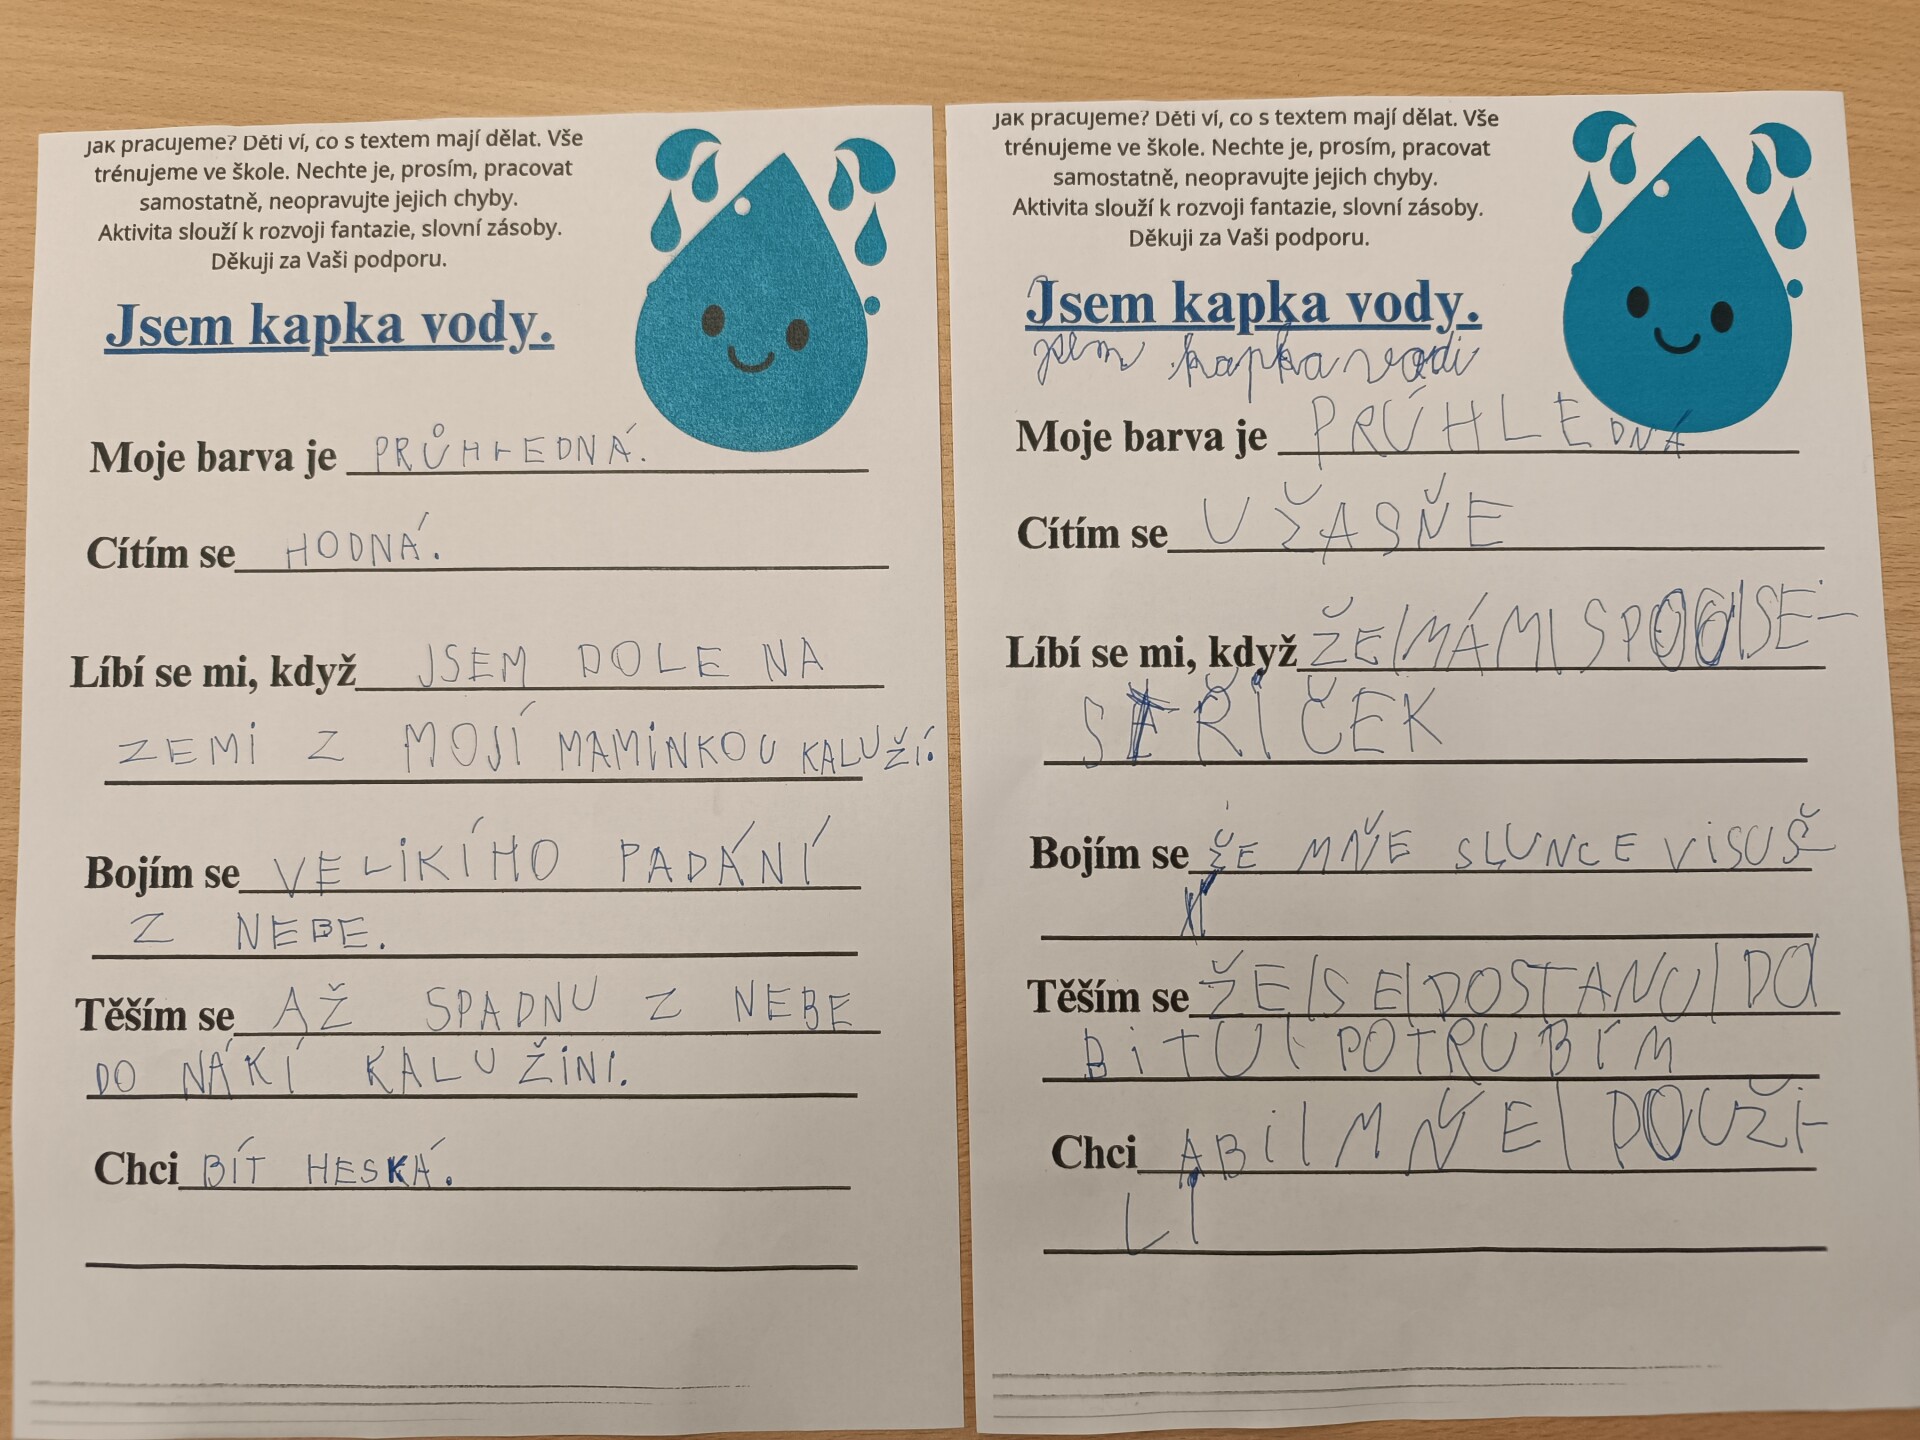 Jak pracujeme? Děti ví, co s textem mají dělat. Vše
trénujeme ve škole. Nechte je, prosím, pracovat
samostatně, neopravujte jejich chyby.
Aktivita slouží k rozvoji fantazie, slovní zásoby.
Děkuji za Vaši podporu.
Jsem kapka vody.
Moje barva je PRŮHLEDNÁ.
Cítím se HODNÁ.
Líbí se mi, když JSEM DOLE NA
ZEMI Z MOJÍ MAMINKOU KALUŽÍ.
Bojím se VELIKÍHO PADÁNÍ
Z NEBE.
Těším se AŽ SPADNU Z NEBE
DO NÁKÍ KALUŽINI.
Chci BÍT HESKÁ.
Jak pracujeme? Děti ví, co s textem mají dělat. Vše
trénujeme ve škole. Nechte je, prosím, pracovat
samostatně, neopravujte jejich chyby.
Aktivita slouží k rozvoji fantazie, slovní zásoby.
Děkuji za Vaši podporu.
Jsem kapka vody.
jsem kapka vodi
Moje barva je PRÚHLEDNÁ
Cítím se UŽASŇE
Líbí se mi, když ŽE/MÁM/ /SE-
SŘÍČEK
Bojím se ŽE MŇE SLUNCE VISUŠ
Těším se ŽE/SE/DOSTANU/DO
BITU/POTRUBÍM
Chci ABI/MŇE/POUŽI-
LI